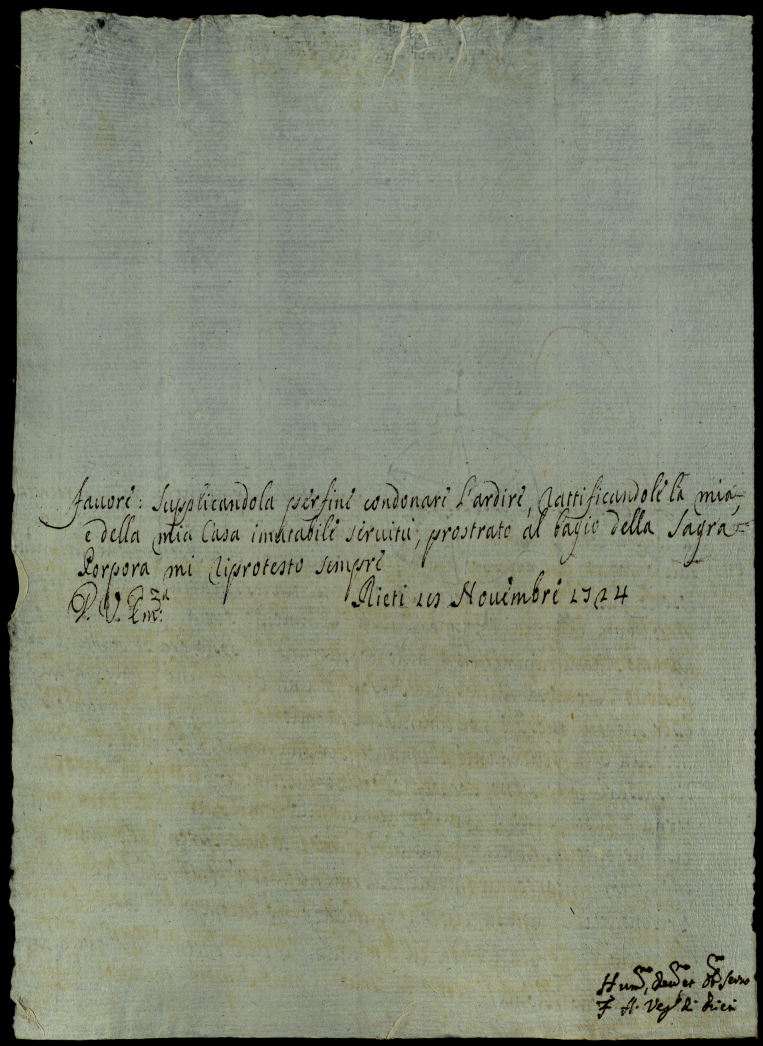 fauore: Supplicandola perfine condonare l'ardire, rattificandole la mia,
e della mia Casa imutabile seruitù, prostrato al bagio della Sagra
Porpora mi riprotesto sempre
D. V. Em:za Rieti Novembre 1724
Hum.mo, deu.mo et servo
F. A. Vesc. di Rieti